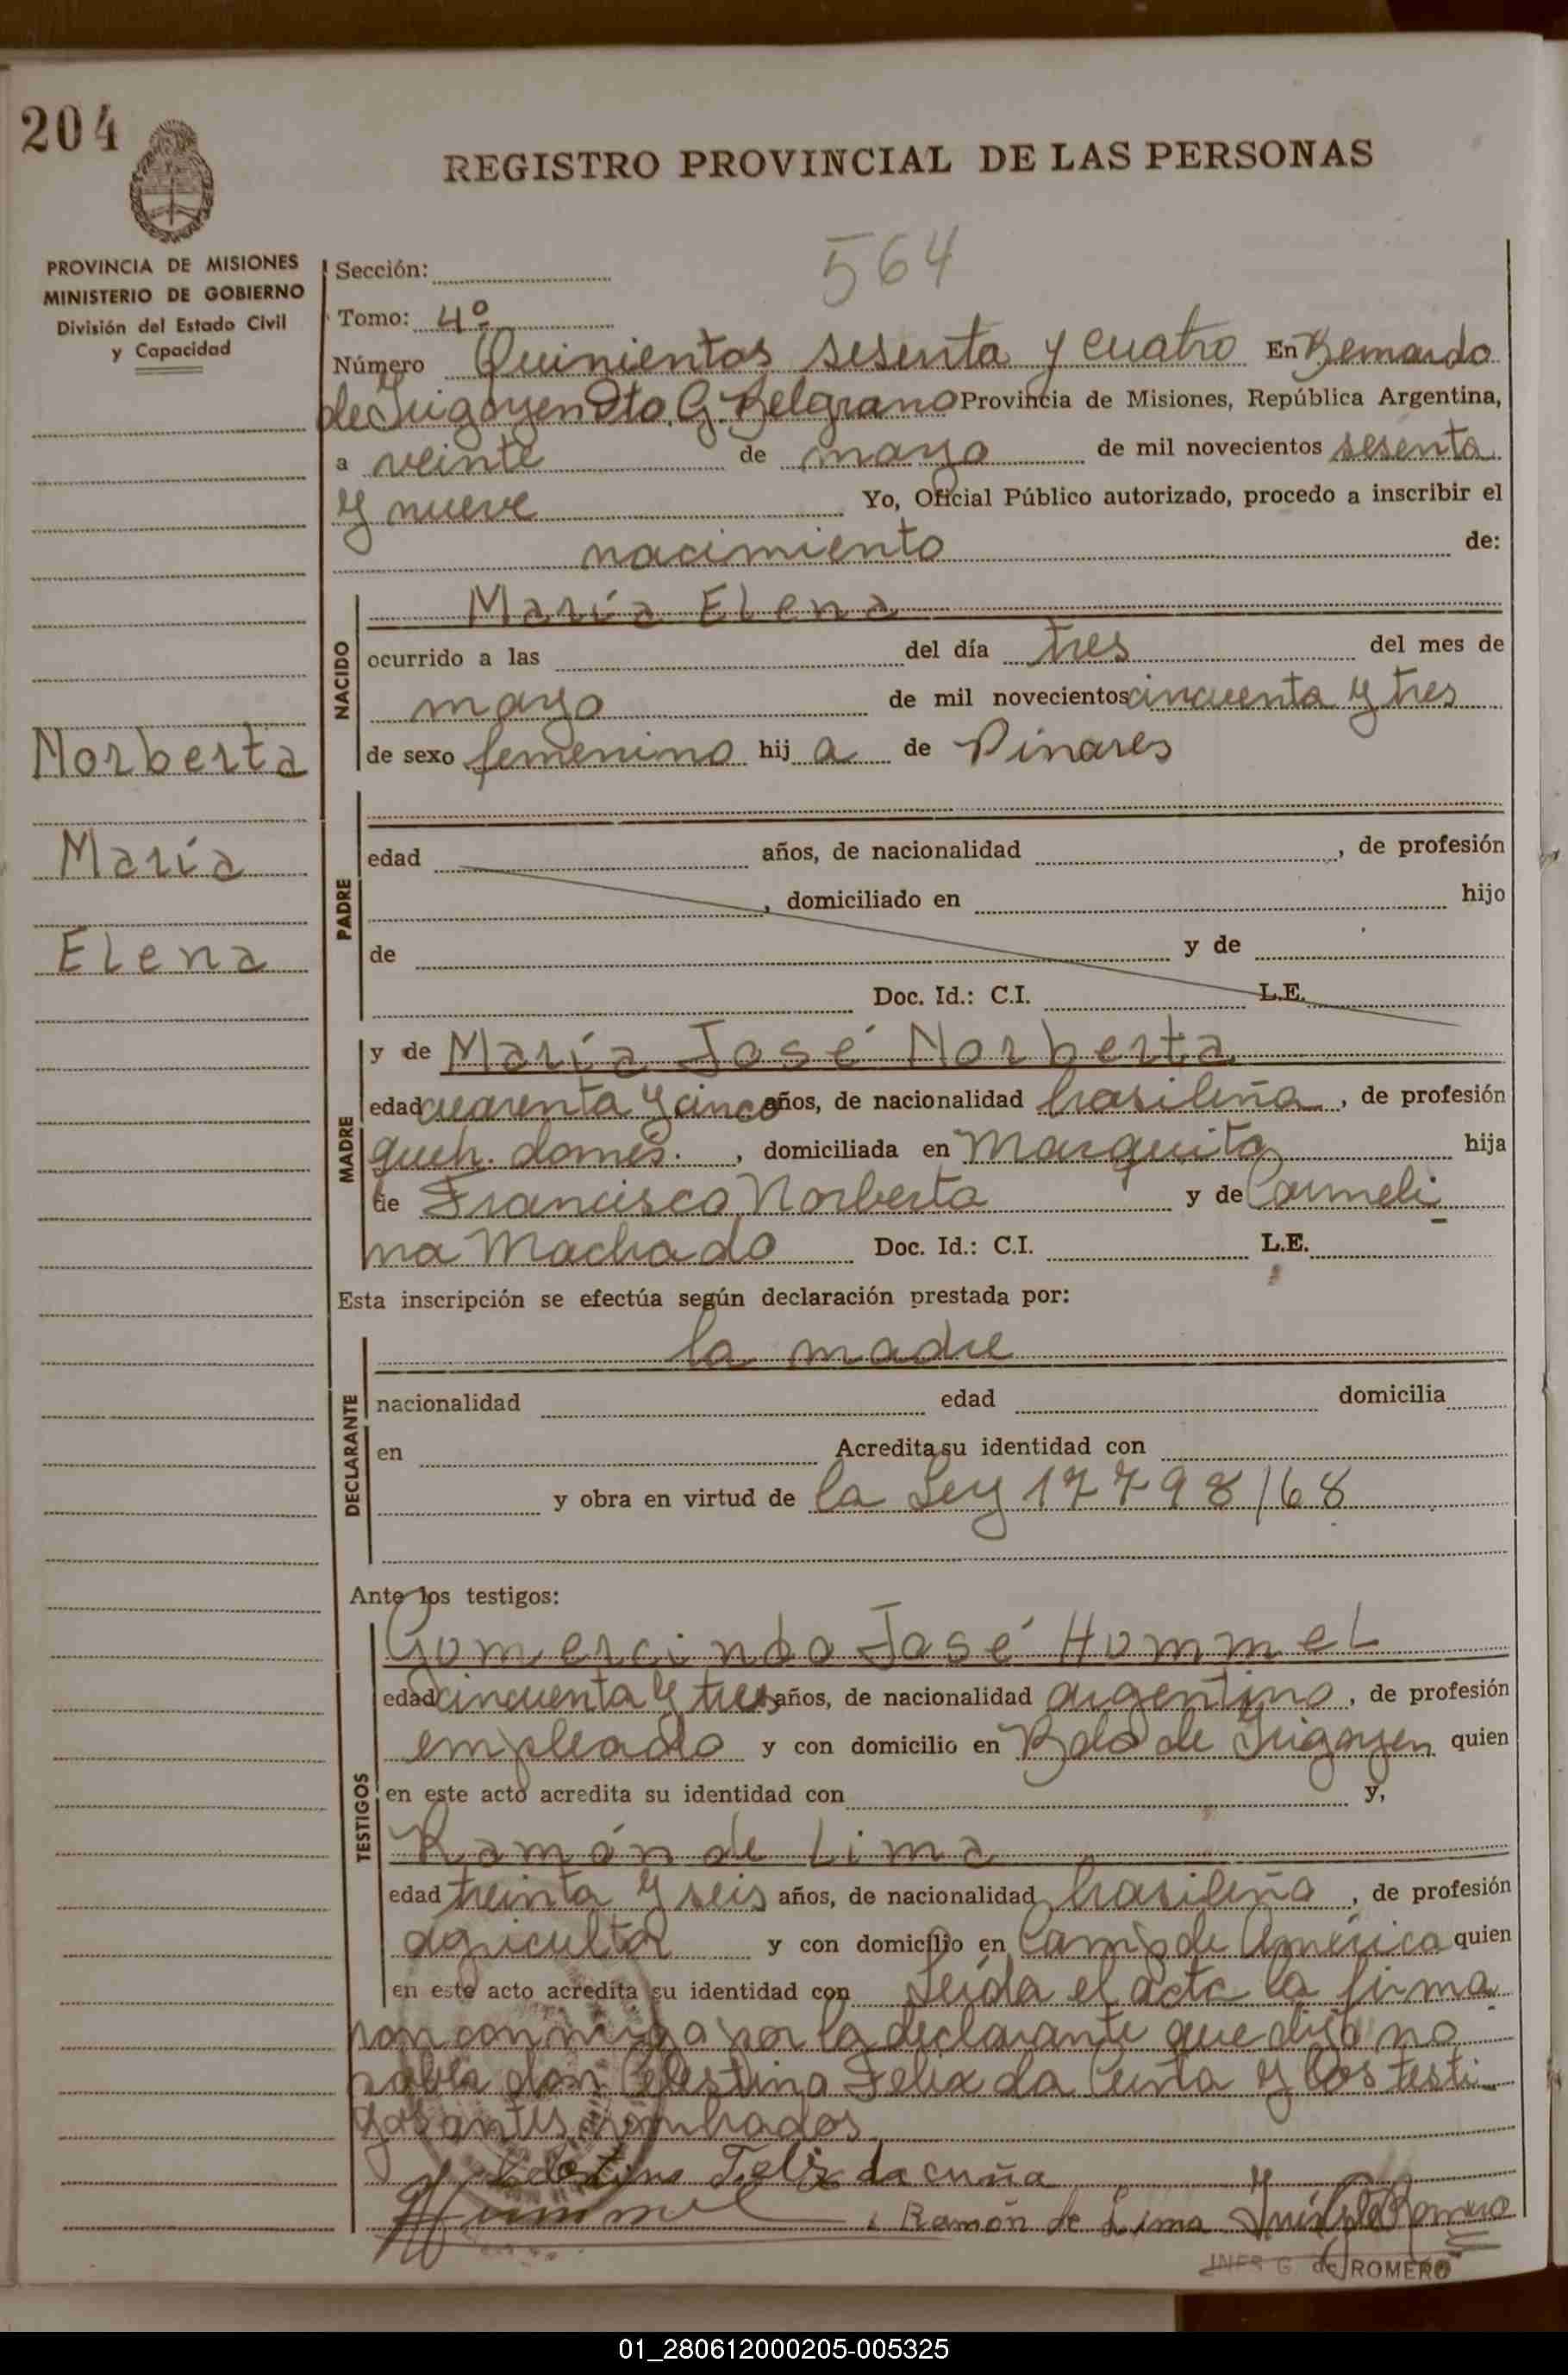 204
REGISTRO PROVINCIAL DE LAS PERSONAS
PROVINCIA DE MISIONES
MINISTERIO DE GOBIERNO
División del Estado Civil
y Capacidad
564
Sección:
Tomo: 4º
Número Quinientos sesenta y cuatro En Bernardo
de Irigoyen Dto. G. Belgrano Provincia de Misiones, República Argentina,
a veinte de mayo de mil novecientos sesenta
y nueve Yo, Oficial Público autorizado, procedo a inscribir el
nacimiento de:
Norberta
María
Elena
NACIDO
María Elena
ocurrido a las del día tres del mes de
mayo de mil novecientos cincuenta y tres
de sexo femenino hij a de Pinares
PADRE
edad años, de nacionalidad , de profesión
, domiciliado en hijo
de y de
Doc. Id.: C.I. L.E.
MADRE
y de María José Norberta
edad cuarenta y cinco años, de nacionalidad brasileña, de profesión
queh. domés. , domiciliada en Marquita hija
de Francisco Norberta y de Carmeli
na Machado Doc. Id.: C.I. L.E.
Esta inscripción se efectúa según declaración prestada por:
DECLARANTE
la madre
nacionalidad edad domicilia
en Acredita su identidad con
y obra en virtud de la Ley 17798/68
Ante los testigos:
TESTIGOS
Gomercindo José Hommel
edad cincuenta y tres años, de nacionalidad argentino, de profesión
empleado y con domicilio en Bdo de Irigoyen quien
en este acto acredita su identidad con y,
Ramón de Lima
edad treinta y seis años, de nacionalidad brasileño, de profesión
agricultor y con domicilio en Camp de América quien
en este acto acredita su identidad con Leída el acta la firma
non conmigo por la declarante que dijo no
saber don Celestino Felix da Cuña y los testi
gos antes nombrados
Celestino Felix da cuña
Hummel Ramón de Lima Inés G de Romero
INES G de ROMERO
01_280612000205-005325